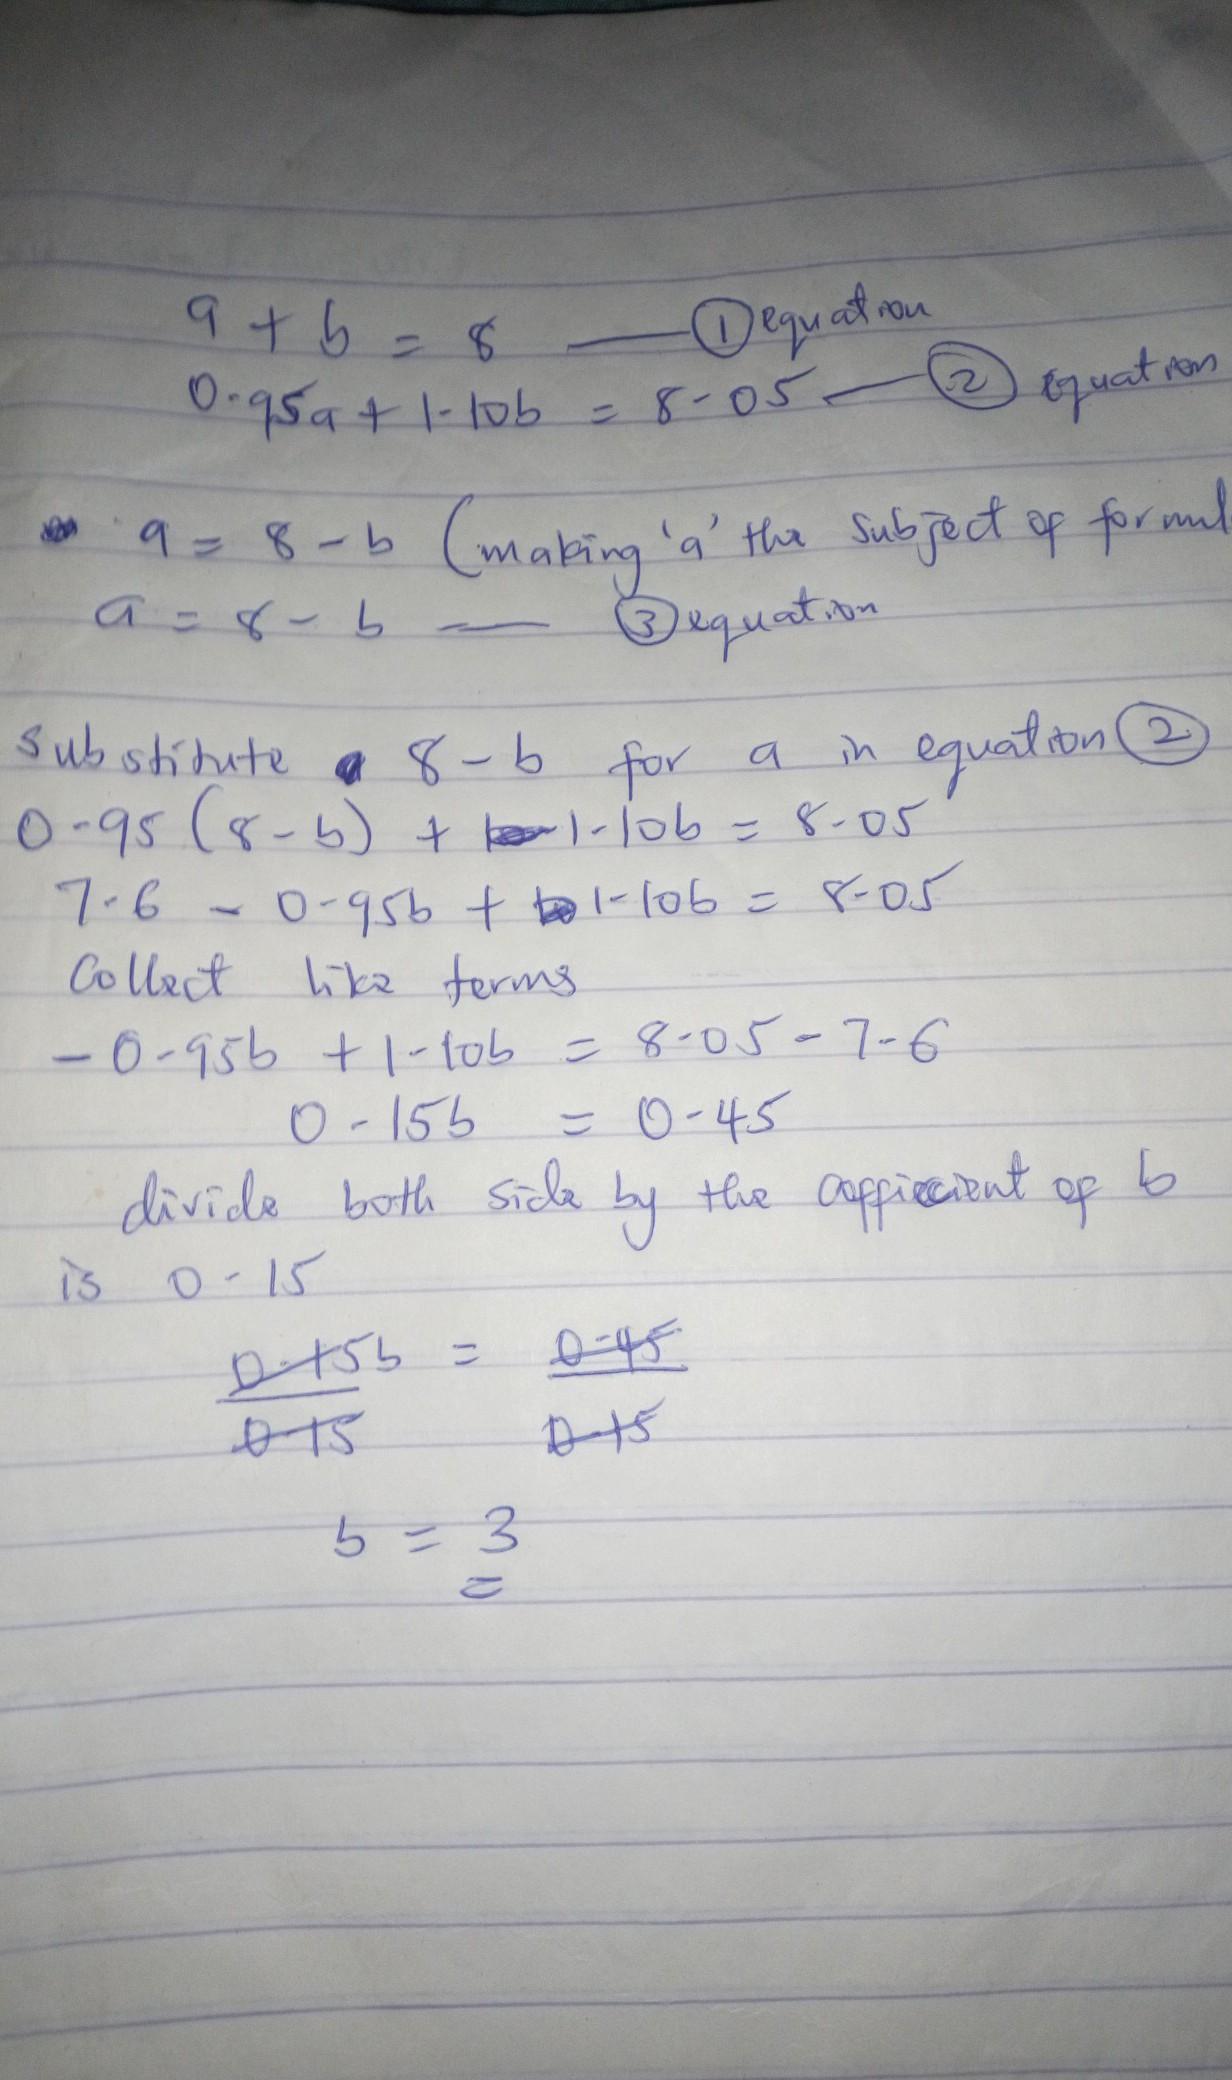 a + b = 8 — ① equation
0.95a + 1.10b = 8.05 — ② equation
a = 8 - b (making 'a' the subject of formul
a = 8 - b — ③ equation
substitute 8 - b for a in equation ②
0.95 (8 - b) + 1.10b = 8.05
7.6 - 0.95b + 1.10b = 8.05
Collect like terms
- 0.95b + 1.10b = 8.05 - 7.6
0.15b = 0.45
divide both side by the coffiecient of b
is 0.15
0.15b = 0.45
0.15 0.15
b = 3
=